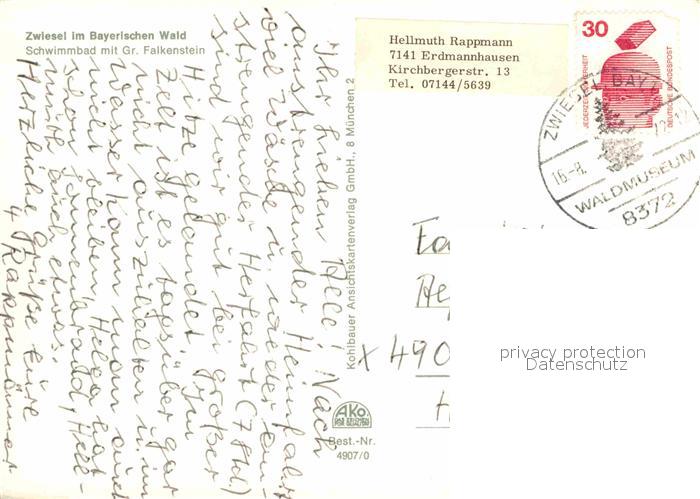 Zwiesel im Bayerischen Wald
Schwimmbad mit Gr. Falkenstein
Hellmuth Rappmann
7141 Erdmannhausen
Kirchbergerstr. 13
Tel. 07144/5639
30
JEDERZEIT SICHERHEIT
DEUTSCHE BUNDESPOST
ZWIESEL, BAY
16.-8.
WALDMUSEUM
8372
Ihr lieben Alle! Nach
anstrengender Heimfahrt
viel Wäsche u. wieder an-
strengender Herfahrt (7 Std.)
sind wir gut bei großer
Hitze gelandet. Im
Zelt ist es tagsüber gar
nicht auszuhalten u. im
Wasser kann man auch
nicht bleiben. Helga hat
schon Sonnenbrand, Hell-
muth auch etwas.
Herzliche Grüße Eure
4 Rappmänner
Kohlbauer Ansichtskartenverlag GmbH., 8 München 2
AKo
Best.-Nr.
4907/0
Fa
x 490
H
privacy protection
Datenschutz